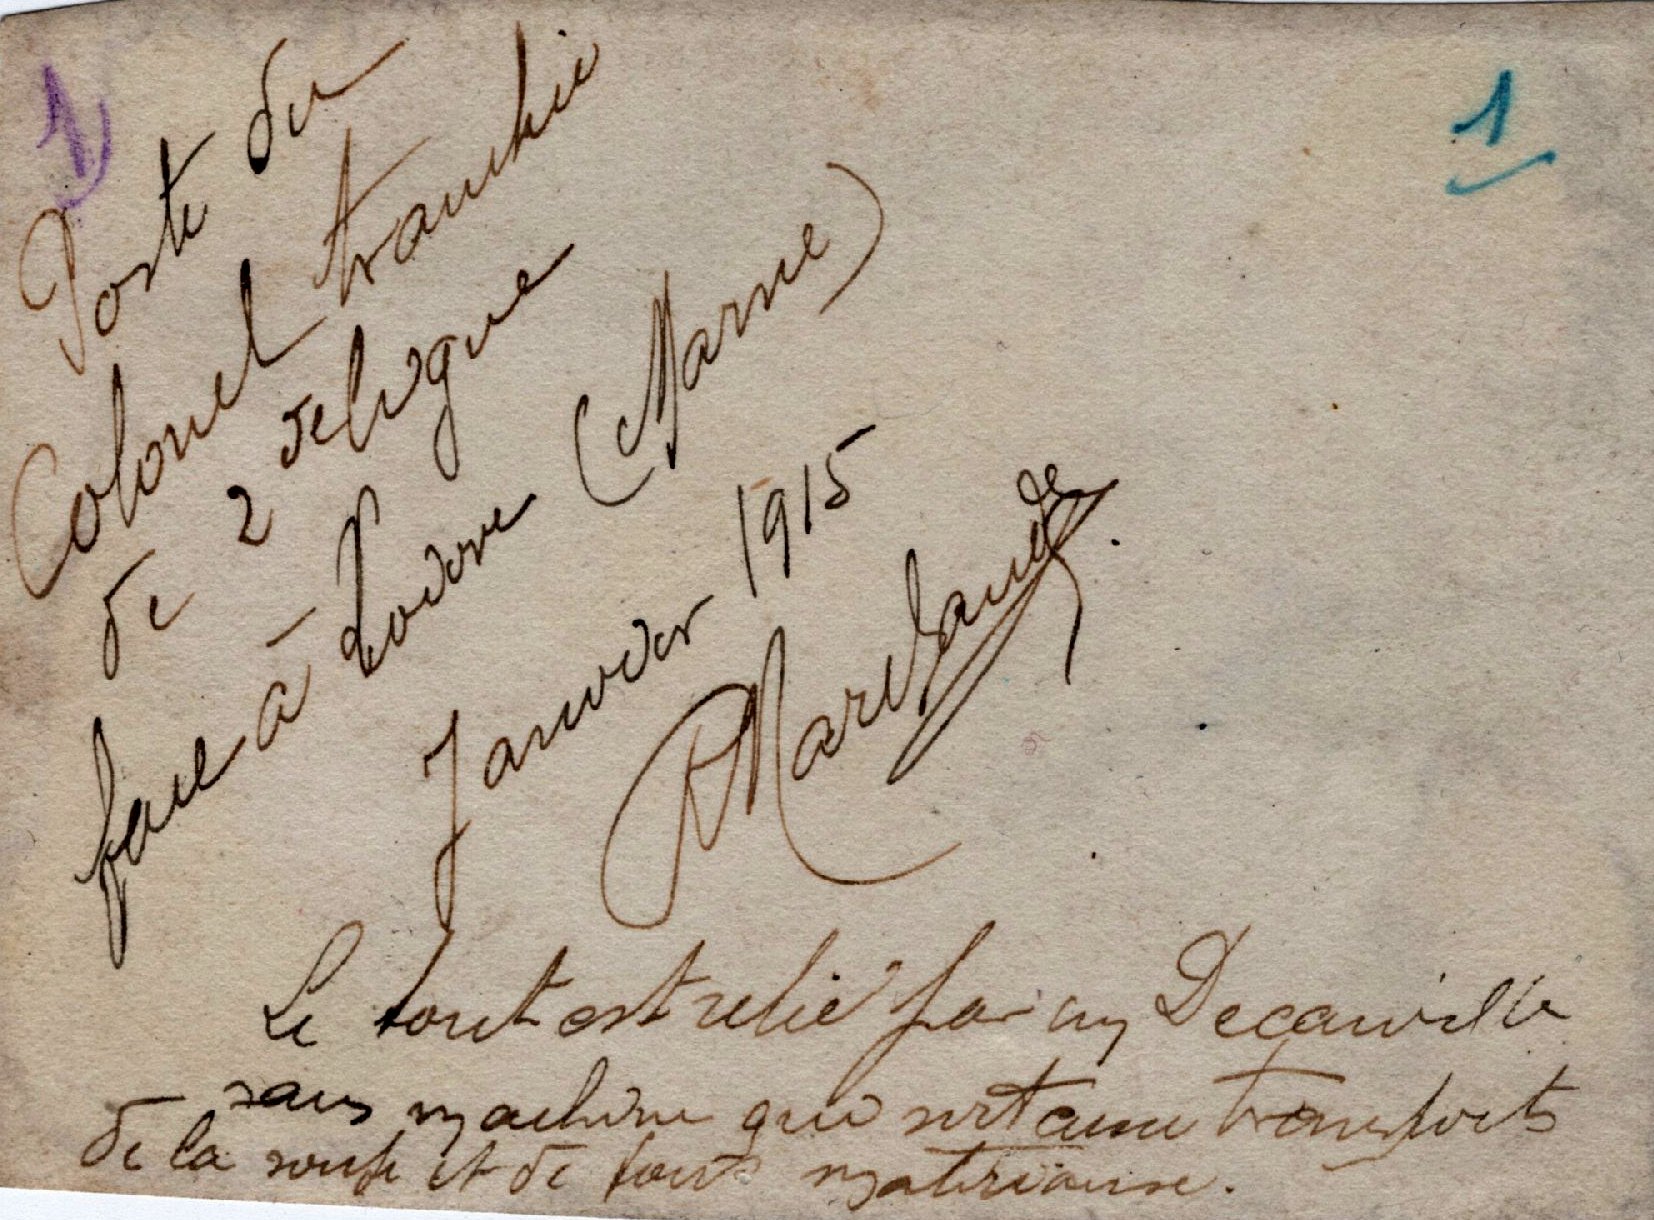 1
1
Poste du
Colonel tranchée
de 2e ligne
face à (Marne)
Janvier 1915
Le tout est relié par un Decauville
sans machine qui sert aux transports
de la soupe et de tous matériaux.